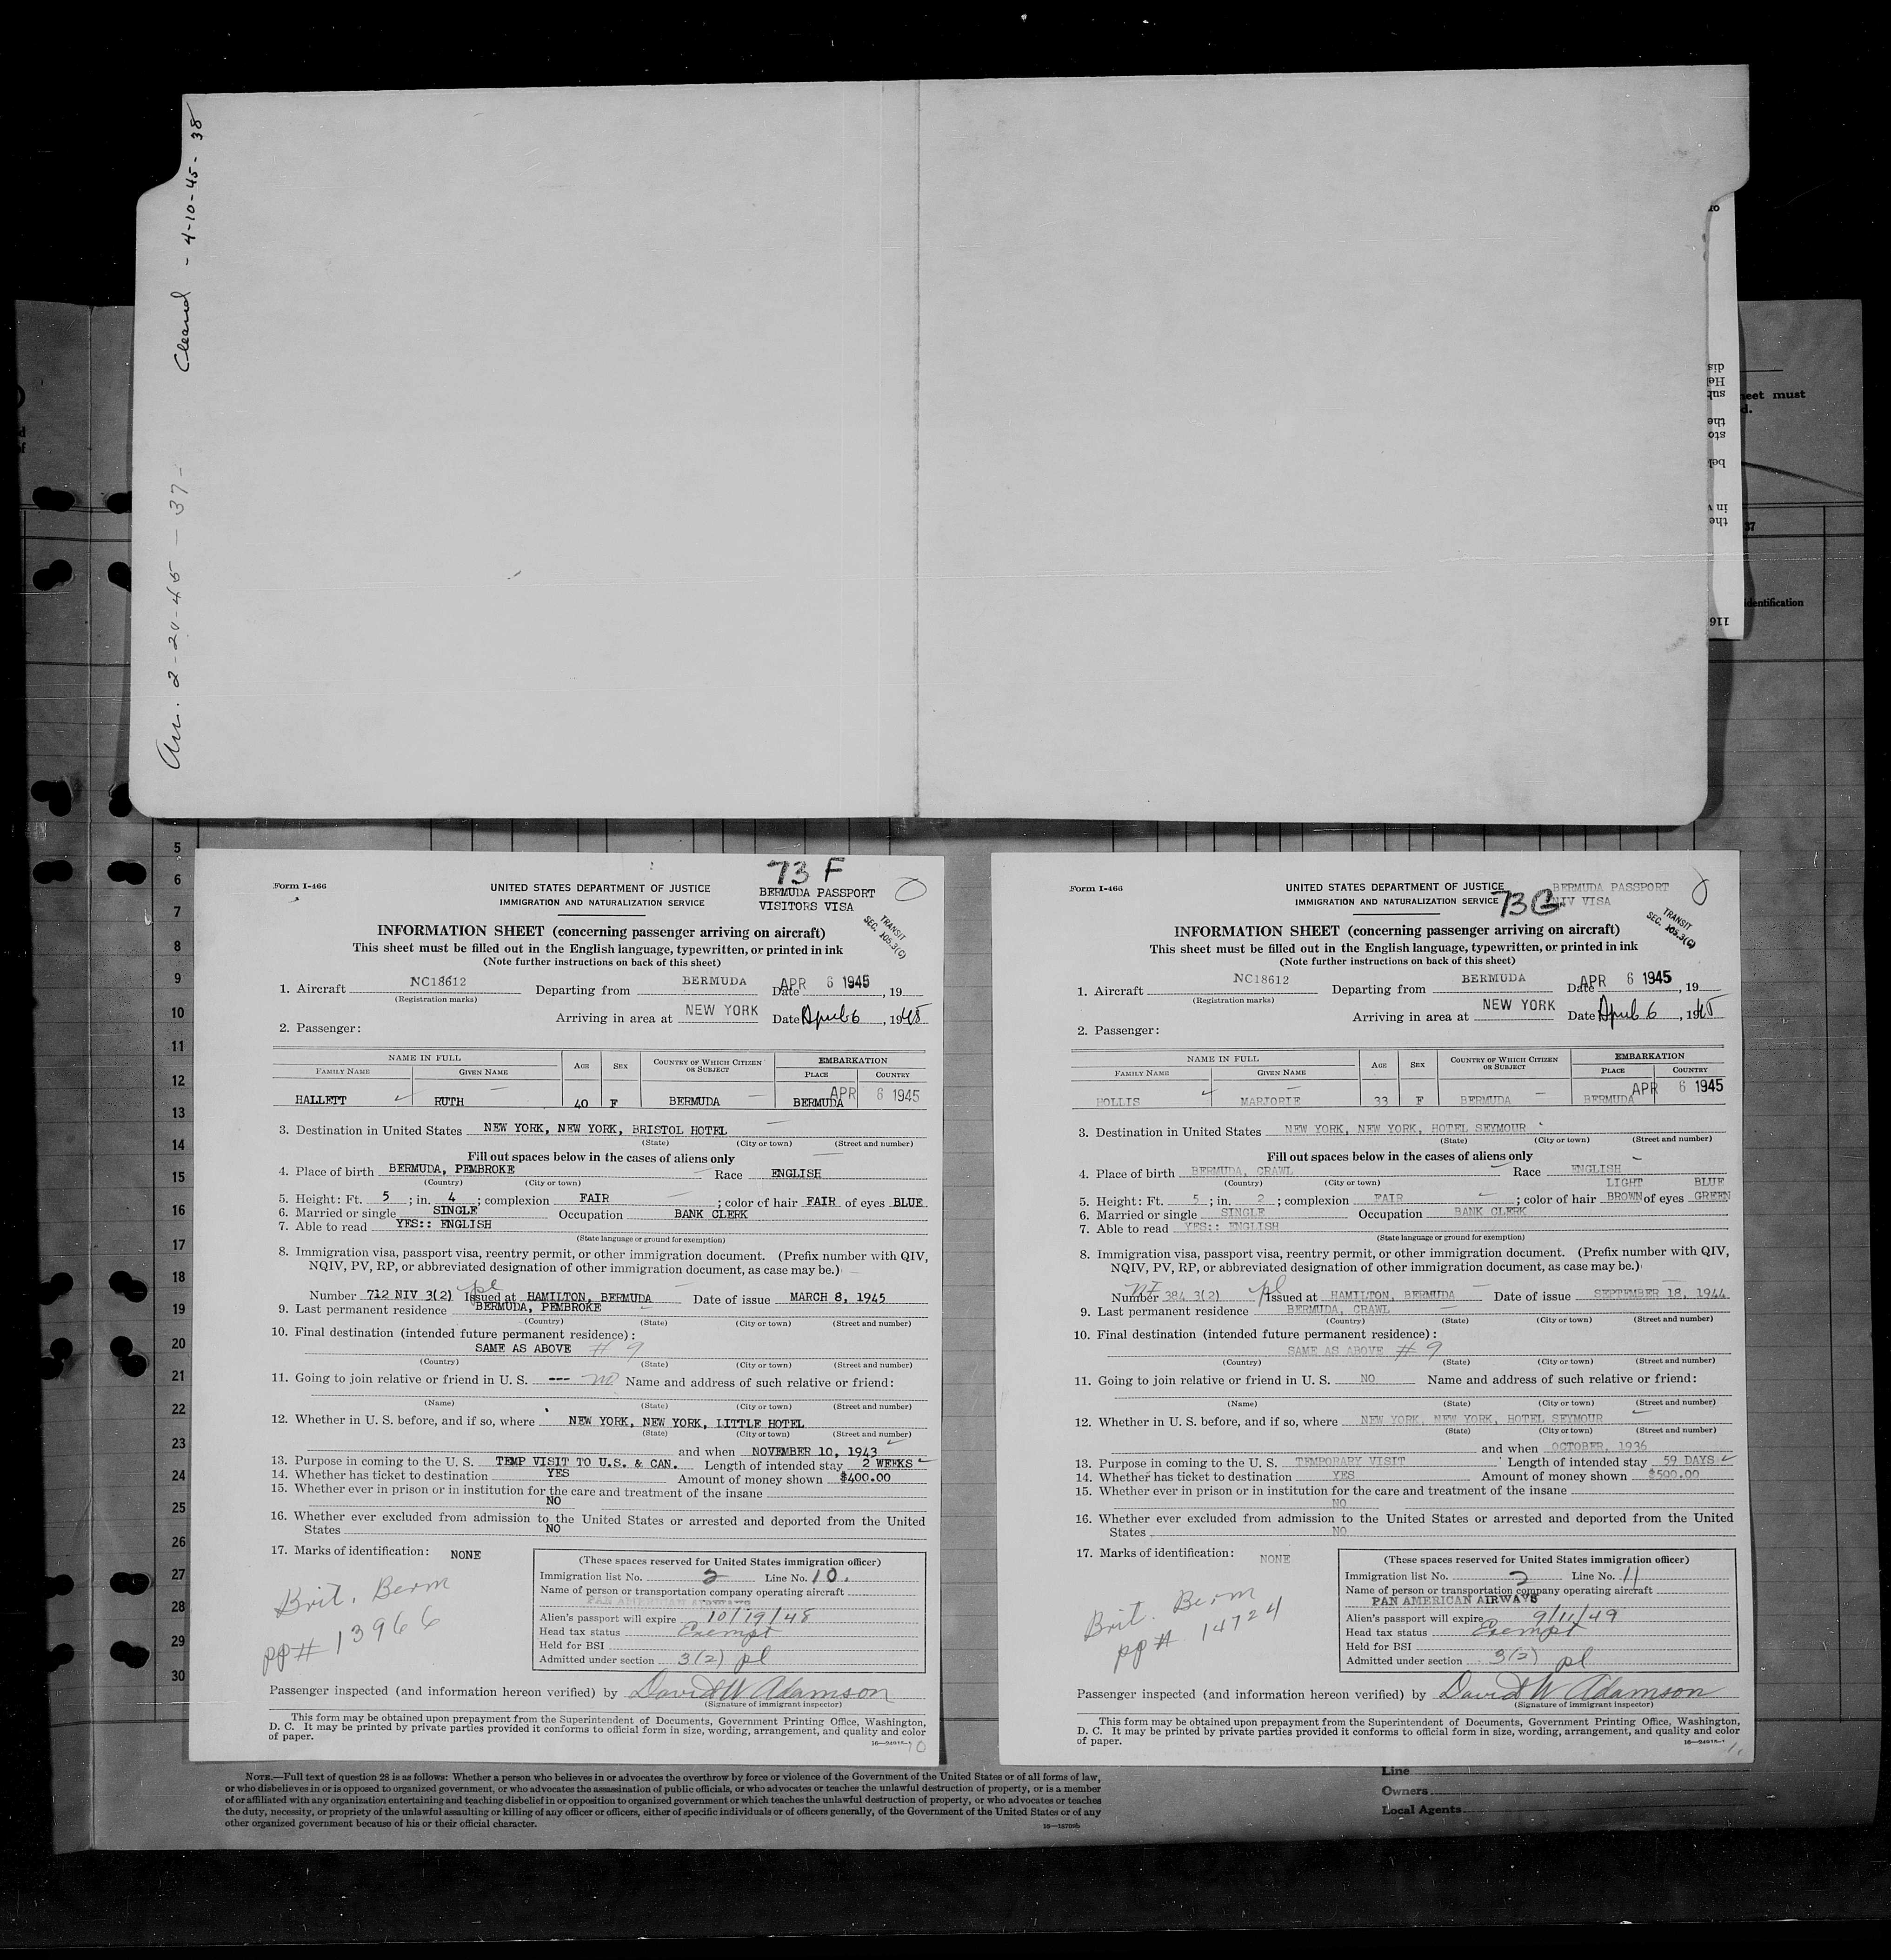 Cleared - 4-10-45- 38
Arr. 2-20-45 - 37-
or
dis
Hel
sub
the
sto
bel
in v
the
116
heet must
d.
37
identification
5
6
7
8
9
10
11
12
13
14
15
16
17
18
19
20
21
22
23
24
25
26
27
28
29
30
73 F
Form I-466
UNITED STATES DEPARTMENT OF JUSTICE
IMMIGRATION AND NATURALIZATION SERVICE
BERMUDA PASSPORT
VISITORS VISA
TRANSIT
SEC. 105.3(C)
INFORMATION SHEET (concerning passenger arriving on aircraft)
This sheet must be filled out in the English language, typewritten, or printed in ink
(Note further instructions on back of this sheet)
1. Aircraft NC18612 Departing from BERMUDA Date APR 6 1945, 19
(Registration marks)
Arriving in area at NEW YORK Date April 6, 1945
2. Passenger:
NAME IN FULL AGE SEX COUNTRY OF WHICH CITIZEN OR SUBJECT EMBARKATION
FAMILY NAME GIVEN NAME PLACE COUNTRY
HALLETT RUTH 40 F BERMUDA BERMUDA APR 6 1945
3. Destination in United States NEW YORK, NEW YORK, BRISTOL HOTEL
(State) (City or town) (Street and number)
Fill out spaces below in the cases of aliens only
4. Place of birth BERMUDA, PEMBROKE Race ENGLISH
(Country) (City or town)
5. Height: Ft. 5; in. 4; complexion FAIR; color of hair FAIR of eyes BLUE
6. Married or single SINGLE Occupation BANK CLERK
7. Able to read YES:: ENGLISH
(State language or ground for exemption)
8. Immigration visa, passport visa, reentry permit, or other immigration document. (Prefix number with QIV,
NQIV, PV, RP, or abbreviated designation of other immigration document, as case may be.)
pl
Number 712 NIV 3(2) Issued at HAMILTON, BERMUDA Date of issue MARCH 8, 1945
9. Last permanent residence BERMUDA, PEMBROKE
(Country) (State) (City or town) (Street and number)
10. Final destination (intended future permanent residence):
SAME AS ABOVE # 9
(Country) (State) (City or town) (Street and number)
11. Going to join relative or friend in U. S. --- no Name and address of such relative or friend:
(Name) (State) (City or town) (Street and number)
12. Whether in U. S. before, and if so, where NEW YORK, NEW YORK, LITTLE HOTEL
(State) (City or town) (Street and number)
and when NOVEMBER 10, 1943
13. Purpose in coming to the U. S. TEMP VISIT TO U.S. & CAN. Length of intended stay 2 WEEKS
14. Whether has ticket to destination YES Amount of money shown $400.00
15. Whether ever in prison or in institution for the care and treatment of the insane
NO
16. Whether ever excluded from admission to the United States or arrested and deported from the United
States NO
17. Marks of identification: NONE
Brit. Berm
pp# 13966
(These spaces reserved for United States immigration officer)
Immigration list No. 2 Line No. 10.
Name of person or transportation company operating aircraft
PAN AMERICAN AIRWAYS
Alien's passport will expire 10/19/48
Head tax status Exempt
Held for BSI
Admitted under section 3(2) pl
Passenger inspected (and information hereon verified) by David W Adamson
(Signature of immigrant inspector)
This form may be obtained upon prepayment from the Superintendent of Documents, Government Printing Office, Washington,
D. C. It may be printed by private parties provided it conforms to official form in size, wording, arrangement, and quality and color
of paper.
16—24915-1
10
Form I-466
UNITED STATES DEPARTMENT OF JUSTICE
IMMIGRATION AND NATURALIZATION SERVICE
73G
BERMUDA PASSPORT
NIV VISA
TRANSIT
SEC. 105.3(C)
INFORMATION SHEET (concerning passenger arriving on aircraft)
This sheet must be filled out in the English language, typewritten, or printed in ink
(Note further instructions on back of this sheet)
1. Aircraft NC18612 Departing from BERMUDA Date APR 6 1945, 19
(Registration marks)
Arriving in area at NEW YORK Date April 6, 1945
2. Passenger:
NAME IN FULL AGE SEX COUNTRY OF WHICH CITIZEN OR SUBJECT EMBARKATION
FAMILY NAME GIVEN NAME PLACE COUNTRY
HOLLIS MARJORIE 33 F BERMUDA BERMUDA APR 6 1945
3. Destination in United States NEW YORK, NEW YORK, HOTEL SEYMOUR
(State) (City or town) (Street and number)
Fill out spaces below in the cases of aliens only
4. Place of birth BERMUDA, CRAWL Race ENGLISH
(Country) (City or town)
LIGHT BLUE
5. Height: Ft. 5; in. 2; complexion FAIR; color of hair BROWN of eyes GREEN
6. Married or single SINGLE Occupation BANK CLERK
7. Able to read YES:: ENGLISH
(State language or ground for exemption)
8. Immigration visa, passport visa, reentry permit, or other immigration document. (Prefix number with QIV,
NQIV, PV, RP, or abbreviated designation of other immigration document, as case may be.)
pl
Number 384 3(2) Issued at HAMILTON, BERMUDA Date of issue SEPTEMBER 18, 1944
9. Last permanent residence BERMUDA, CRAWL
(Country) (State) (City or town) (Street and number)
10. Final destination (intended future permanent residence):
SAME AS ABOVE # 9
(Country) (State) (City or town) (Street and number)
11. Going to join relative or friend in U. S. NO Name and address of such relative or friend:
(Name) (State) (City or town) (Street and number)
12. Whether in U. S. before, and if so, where NEW YORK, NEW YORK, HOTEL SEYMOUR
(State) (City or town) (Street and number)
and when OCTOBER, 1936
13. Purpose in coming to the U. S. TEMPORARY VISIT Length of intended stay 59 DAYS
14. Whether has ticket to destination YES Amount of money shown $500.00
15. Whether ever in prison or in institution for the care and treatment of the insane
NO
16. Whether ever excluded from admission to the United States or arrested and deported from the United
States NO
17. Marks of identification: NONE
Brit. Berm
pp# 14724
(These spaces reserved for United States immigration officer)
Immigration list No. 2 Line No. 11
Name of person or transportation company operating aircraft
PAN AMERICAN AIRWAYS
Alien's passport will expire 9/11/49
Head tax status Exempt
Held for BSI
Admitted under section 3(2) pl
Passenger inspected (and information hereon verified) by David W Adamson
(Signature of immigrant inspector)
This form may be obtained upon prepayment from the Superintendent of Documents, Government Printing Office, Washington,
D. C. It may be printed by private parties provided it conforms to official form in size, wording, arrangement, and quality and color
of paper.
16—24915-1
11
NOTE.—Full text of question 28 is as follows: Whether a person who believes in or advocates the overthrow by force or violence of the Government of the United States or of all forms of law,
or who disbelieves in or is opposed to organized government, or who advocates the assassination of public officials, or who advocates or teaches the unlawful destruction of property, or is a member
of or affiliated with any organization entertaining and teaching disbelief in or opposition to organized government or which teaches the unlawful destruction of property, or who advocates or teaches
the duty, necessity, or propriety of the unlawful assaulting or killing of any officer or officers, either of specific individuals or of officers generally, of the Government of the United States or of any
other organized government because of his or their official character.
Line
Owners
Local Agents